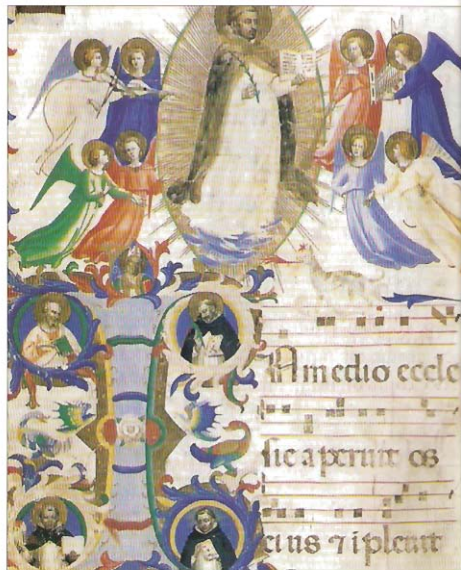 N medio eccle
sie aperuit os
eius ⁊ ipleuit